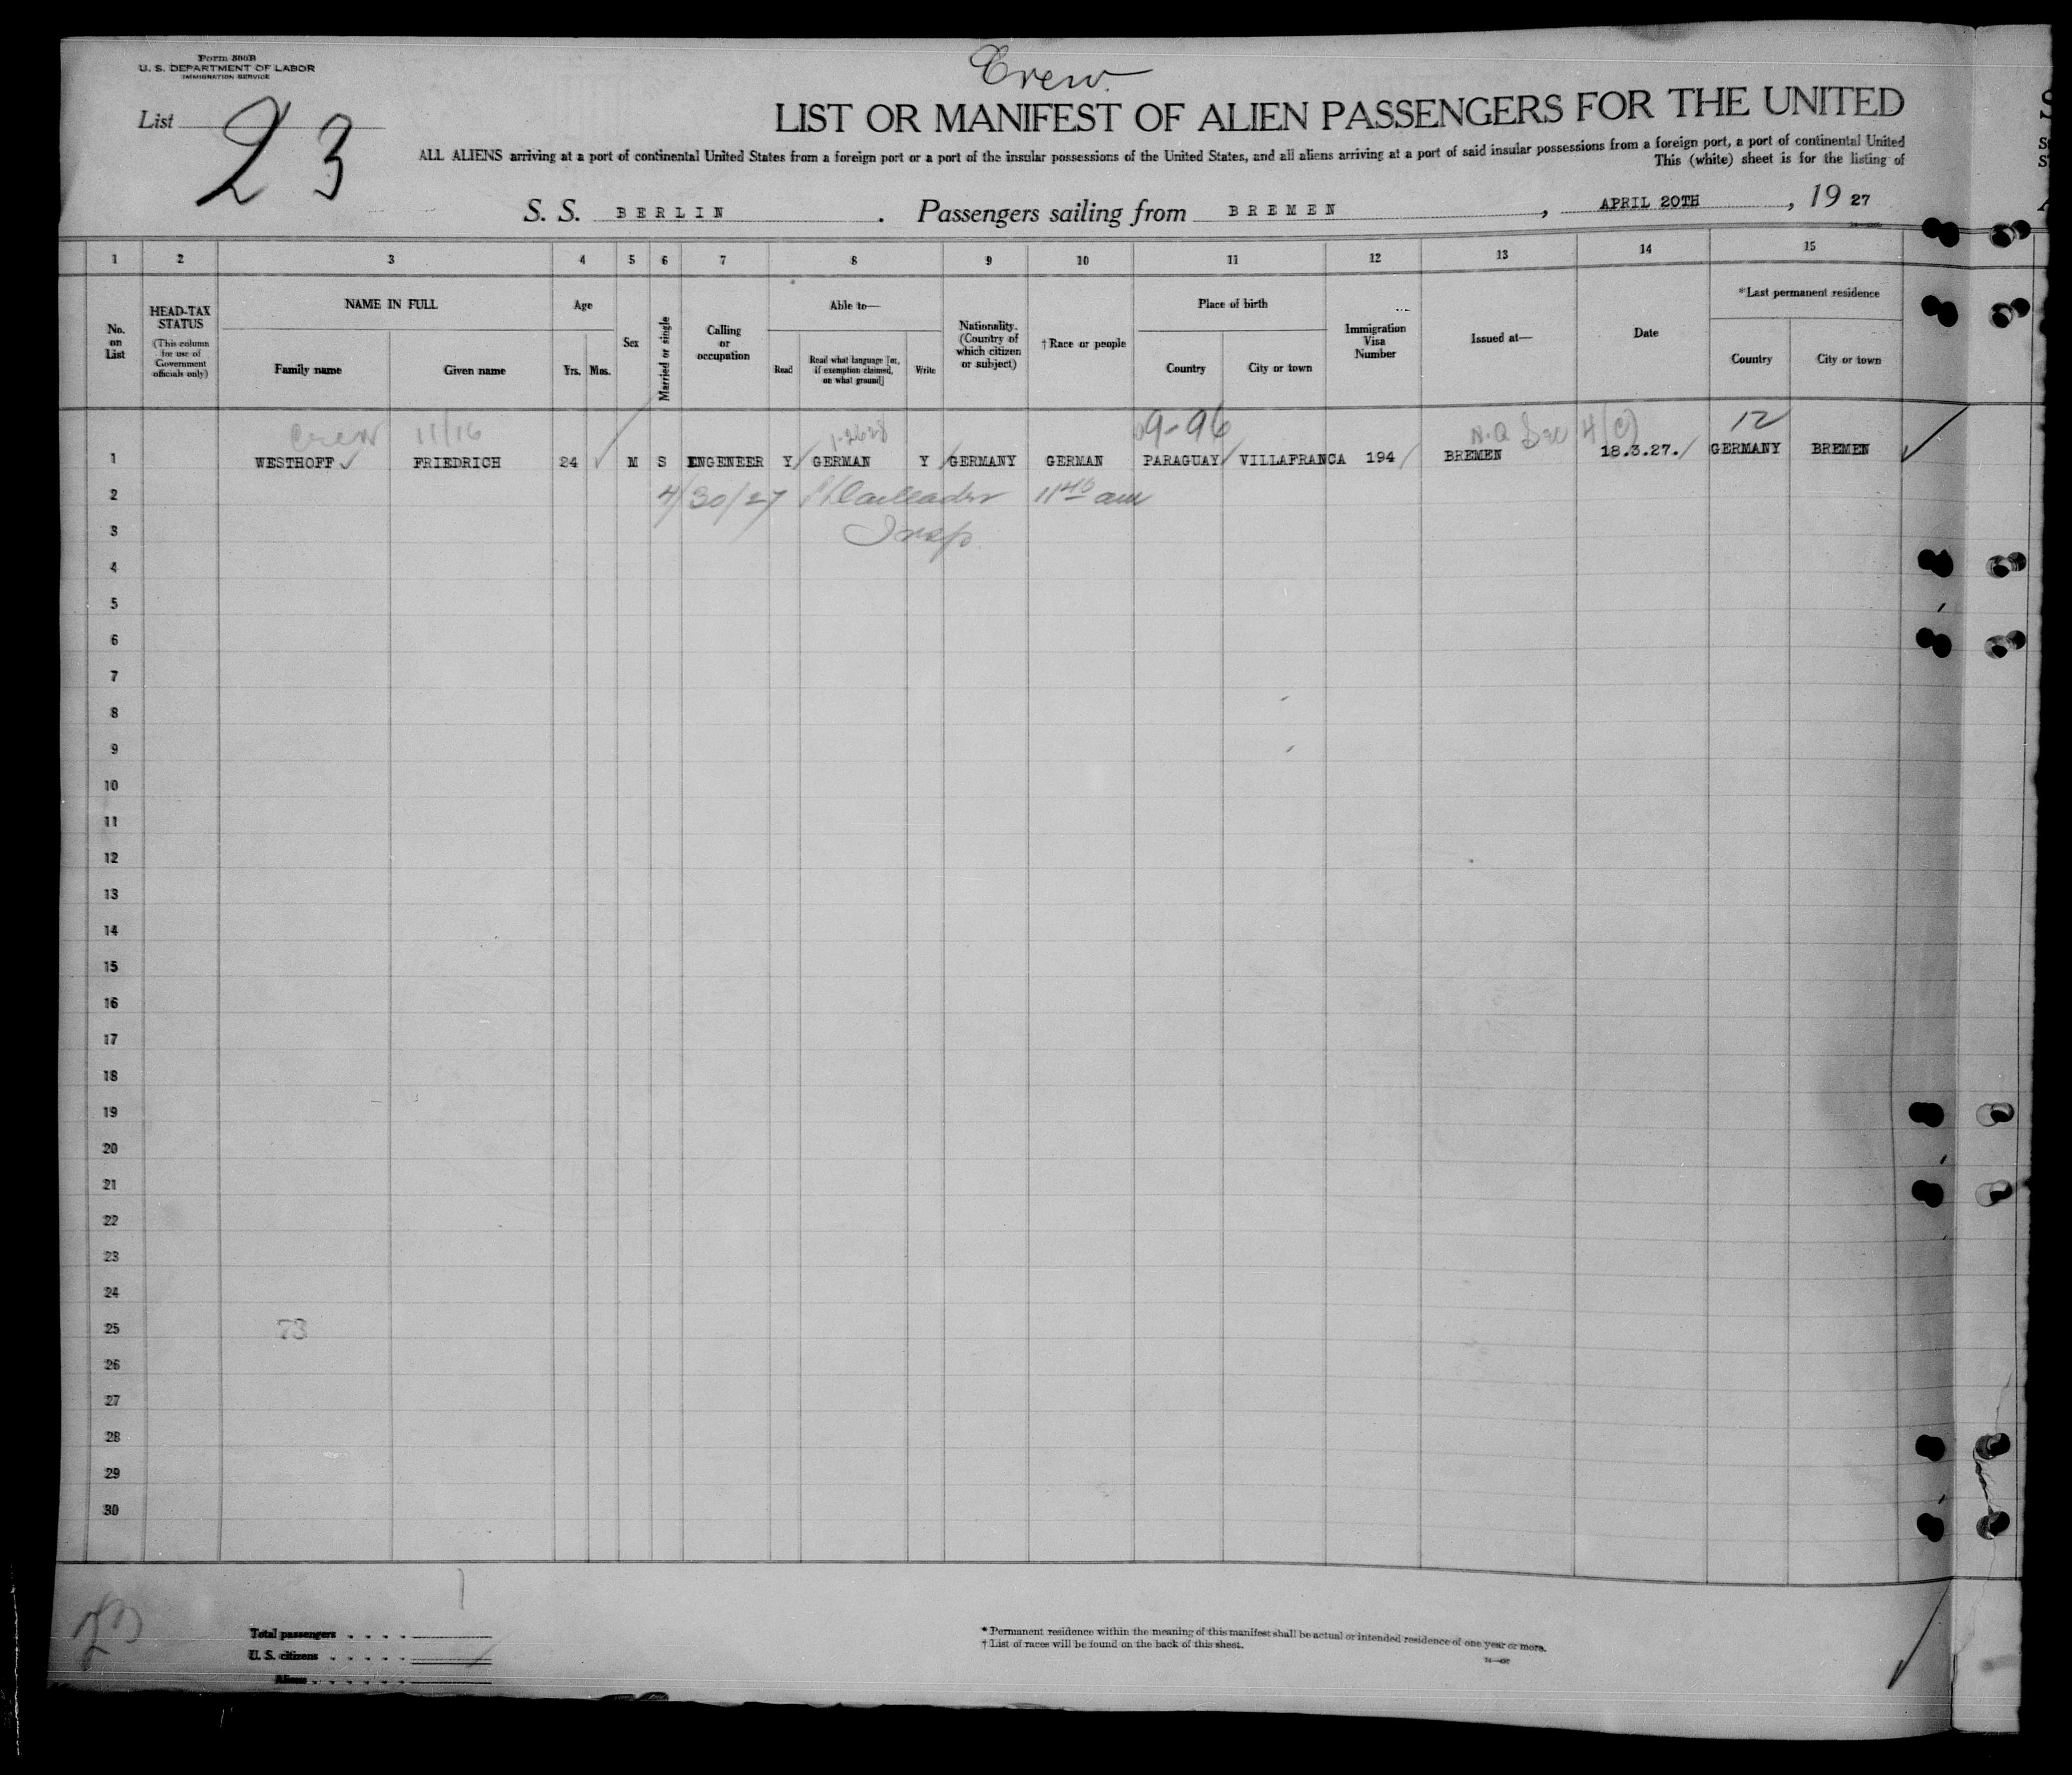 Form 500B
U. S. DEPARTMENT OF LABOR
IMMIGRATION SERVICE
Crew.
List 23
LIST OR MANIFEST OF ALIEN PASSENGERS FOR THE UNITED
ALL ALIENS arriving at a port of continental United States from a foreign port or a port of the insular possessions of the United States, and all aliens arriving at a port of said insular possessions from a foreign port, a port of continental United
This (white) sheet is for the listing of
S. S. BERLIN . Passengers sailing from BREMEN , APRIL 20TH , 19 27
1 2 3 4 5 6 7 8 9 10 11 12 13 14 15
No. on List
HEAD-TAX STATUS
(This column for use of Government officials only)
NAME IN FULL
Family name
Given name
Age
Yrs. Mos.
Sex
Married or single
Calling or occupation
Able to—
Read
Read what language [or, if exemption claimed, on what ground]
Write
Nationality. (Country of which citizen or subject)
† Race or people
Place of birth
Country
City or town
Immigration Visa Number
Issued at—
Date
*Last permanent residence
Country
City or town
Crew 11/16 9-96 4(c) 12
1 WESTHOFF FRIEDRICH 24 M S ENGENEER Y GERMAN Y GERMANY GERMAN PARAGUAY VILLAFRANCA 194 BREMEN 18.3.27. GERMANY BREMEN
2 4/30/27 11 40 am
3
4
5
6
7
8
9
10
11
12
13
14
15
16
17
18
19
20
21
22
23
24
25 73
26
27
28
29
30
1
23
Total passengers
U. S. citizens
Aliens
* Permanent residence within the meaning of this manifest shall be actual or intended residence of one year or more.
† List of races will be found on the back of this sheet.